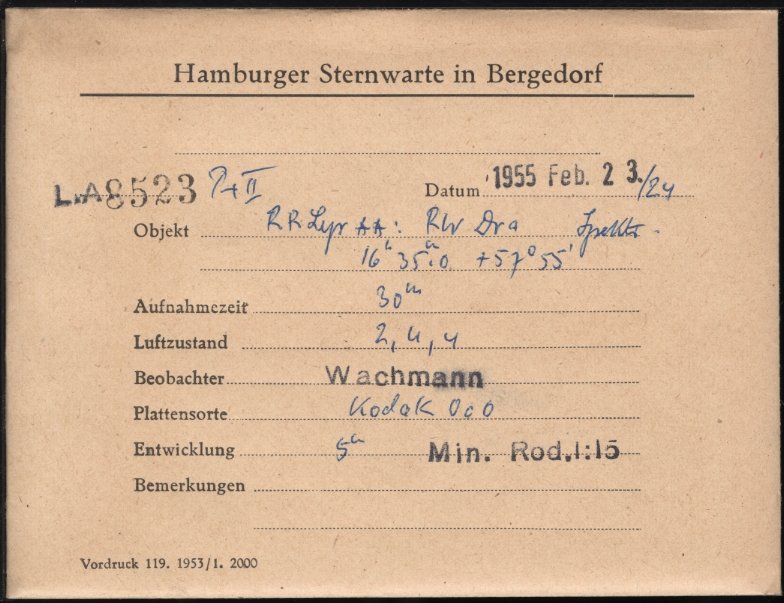 Hamburger Sternwarte in Bergedorf
L.A 8523 P+II Datum 1955 Feb. 2 3./24
Objekt RR Lyr ✶✶: RW Dra Spektr.
16ʰ 35ᵐ.0 +57° 55'
Aufnahmezeit 30ᵐ
Luftzustand 2, 4, 4
Beobachter Wachmann
Plattensorte Kodak OaO
Entwicklung 5ᵐ Min. Rod.1:15
Bemerkungen
Vordruck 119. 1953/1. 2000